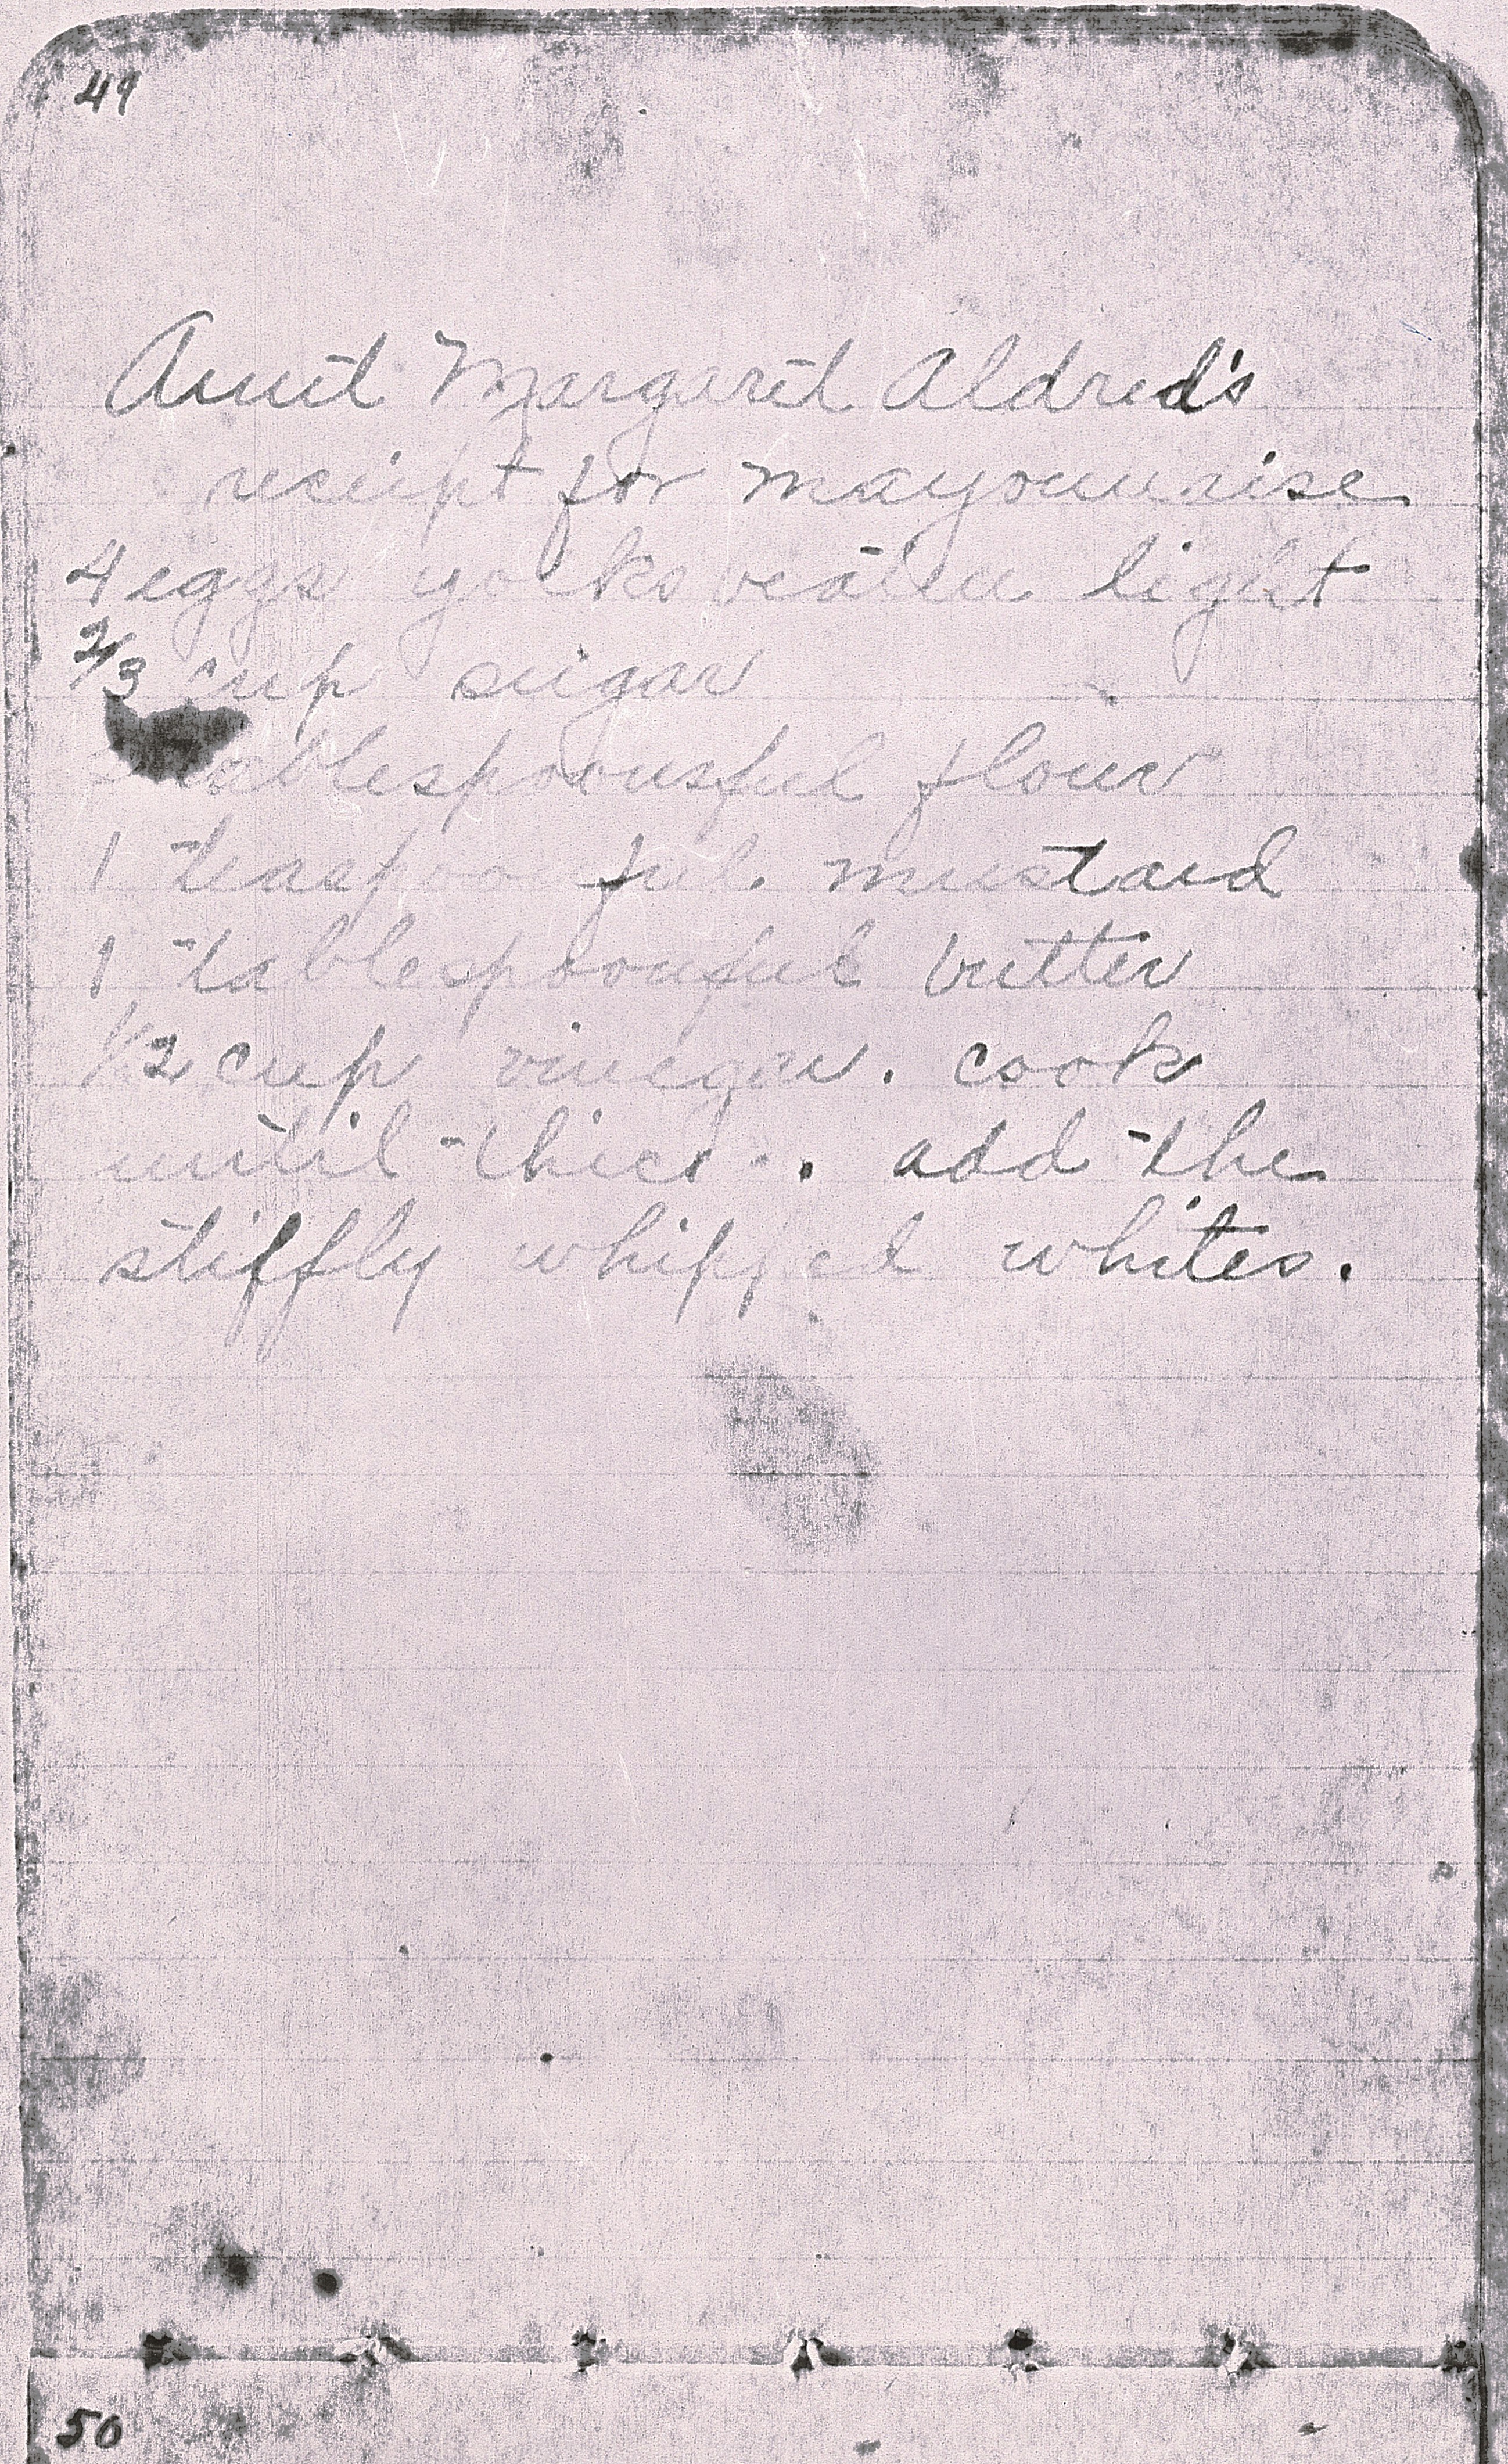 49
Aunt Margaret Aldred's
receipt for mayonnaise
4 eggs yolks beaten light
2/3 cup sugar
tablespoonsful flour
1 teaspoonful mustard
1 tablespoonful butter
1/2 cup vinegar. cook
until thick. add the
stiffly whipped whites.
50